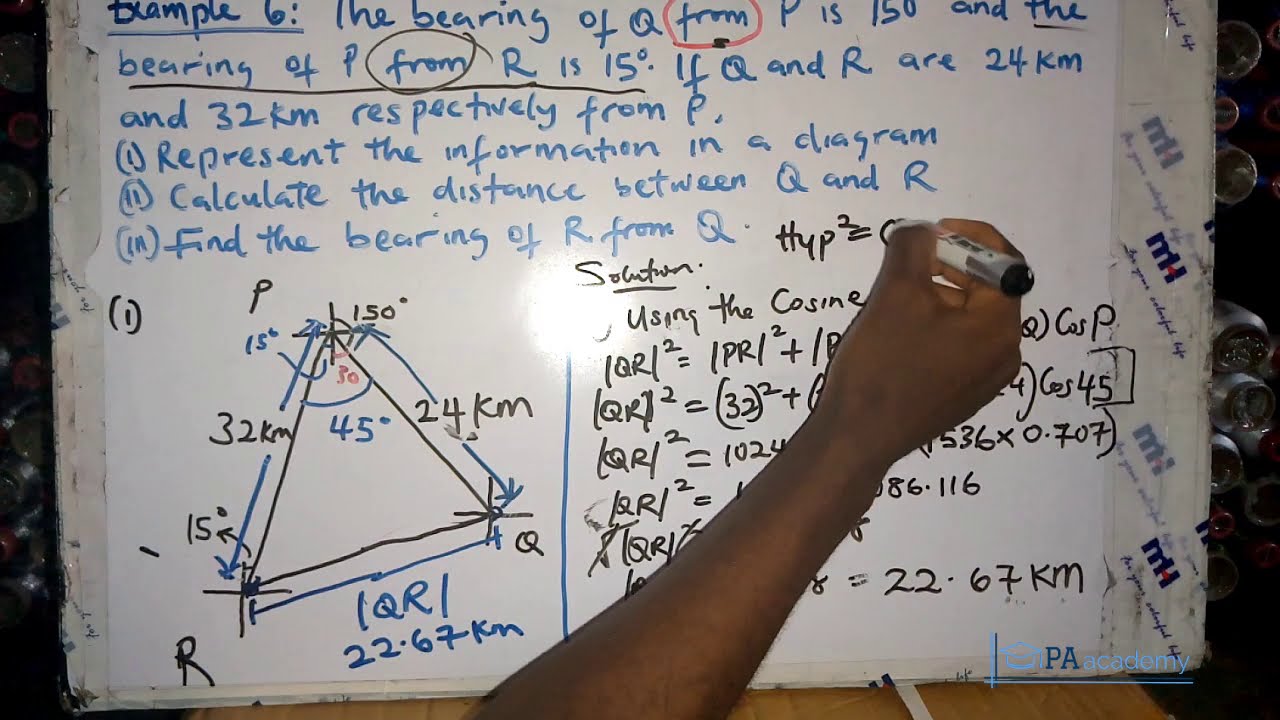 Example 6: The bearing of Q from P is 150 and the
bearing of P from R is 15°. If Q and R are 24km
and 32km respectively from P.
(i) Represent the information in a diagram
(ii) Calculate the distance between Q and R
(iii) Find the bearing of R from Q.
Hyp² =
Solution.
(i)
P
150°
15°
30
45°
32km
24km
15°
Q
R
|QR|
22.67km
Using the Cosine
|QR|² = |PR|² + |P Q) Cos P
|QR|² = (32)² + ( 4) Cos 45
|QR|² = 1024 (1536 x 0.707)
|QR|² = 086.116
|QR|
= 22.67 KM
iPA academy
mH